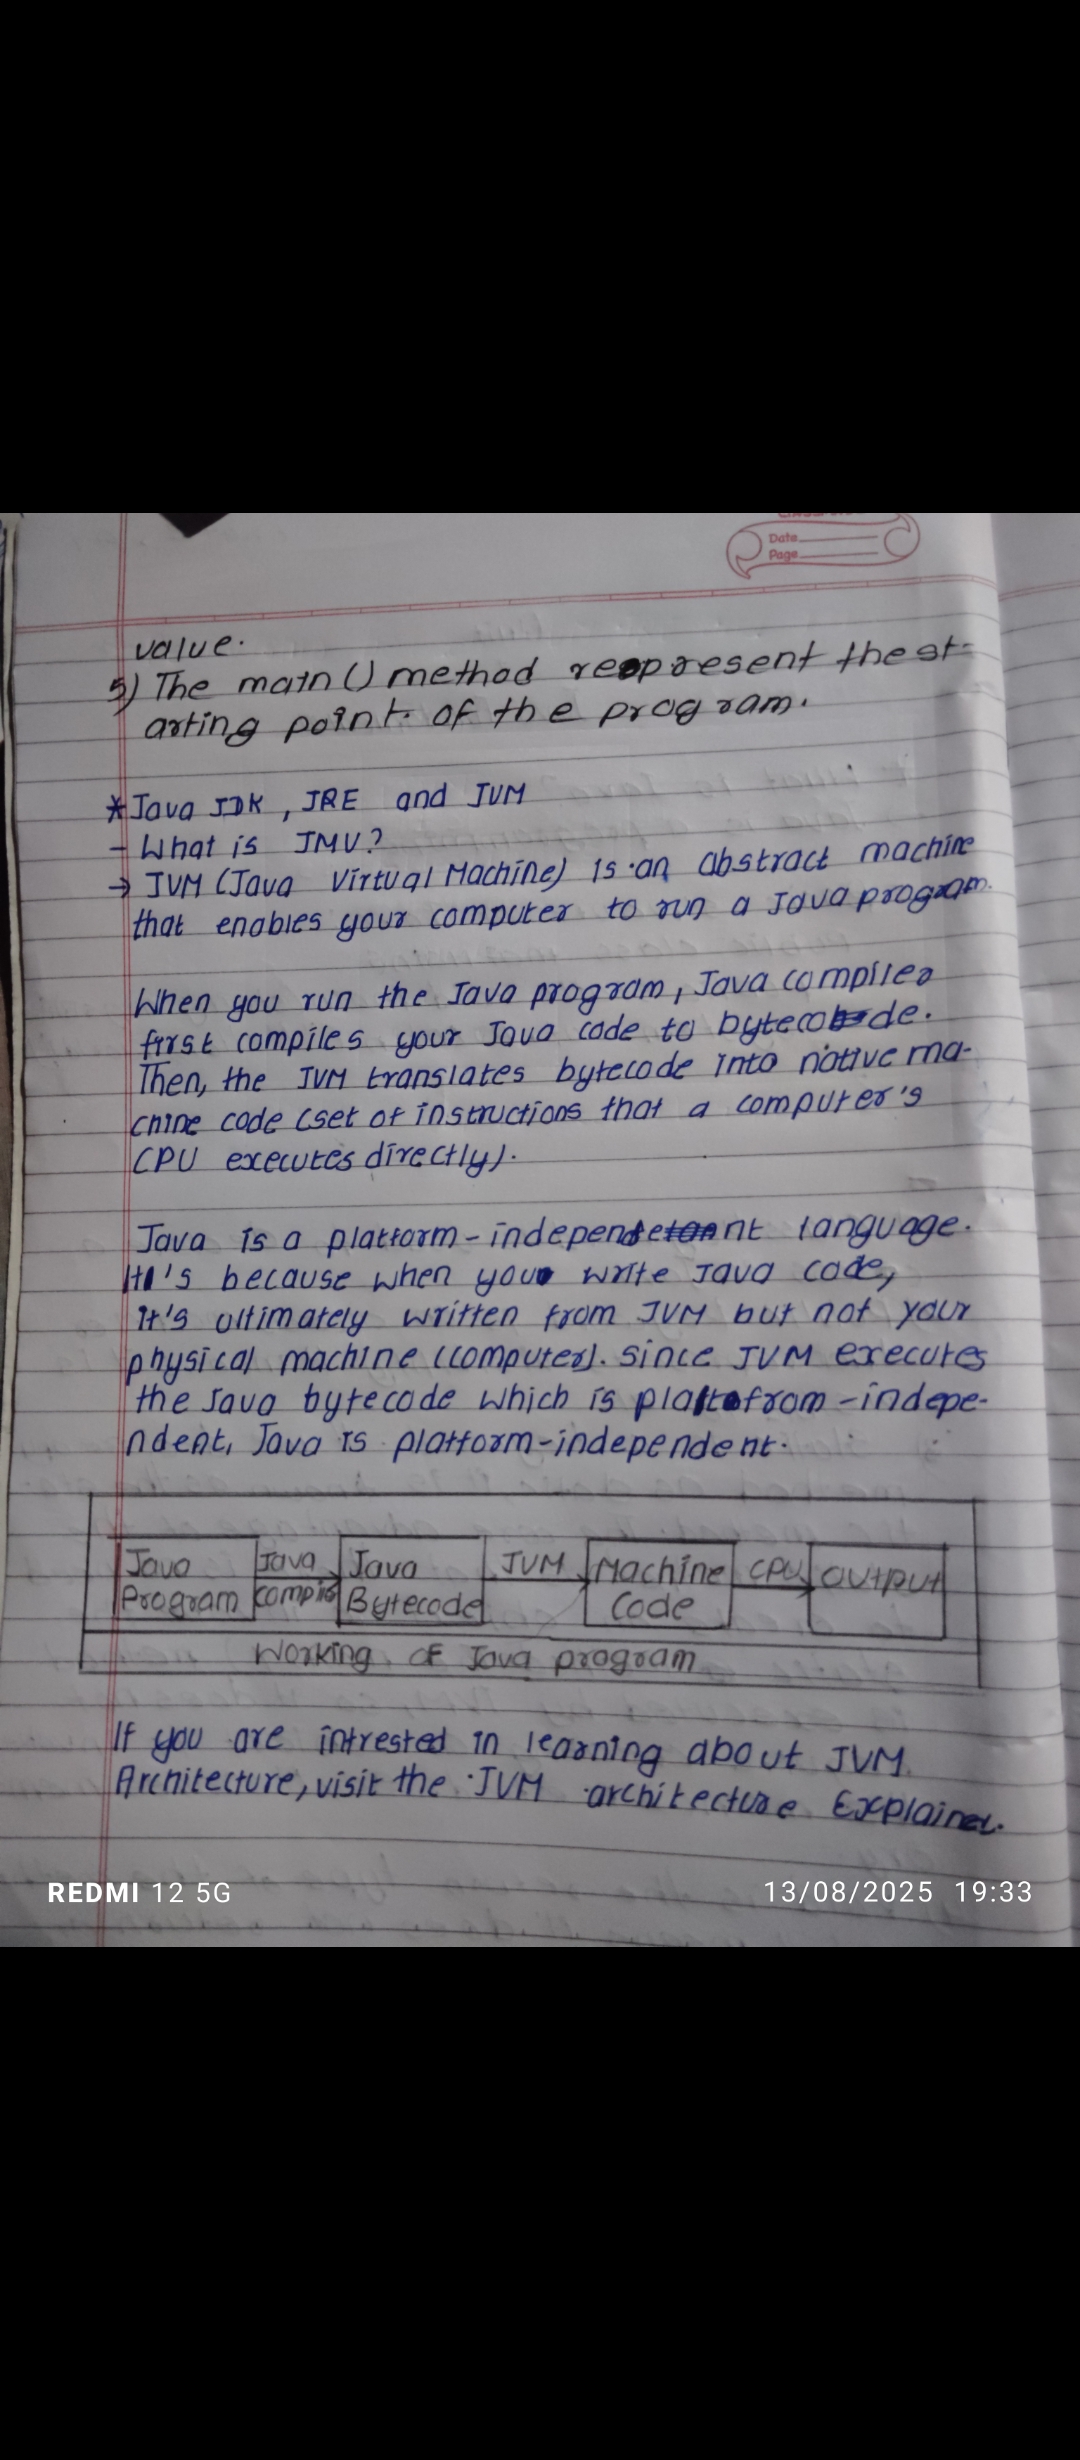 Date
Page
value.
5) The main() method represent the st-
arting point of the program.
* Java JDK, JRE and JVM
- What is JMV?
→ JVM (Java Virtual Machine) is an abstract machine
that enables your computer to run a Java program.
When you run the Java program, Java compiler
first compiles your Java code to bytecode.
Then, the JVM translates bytecode into native ma-
chine code (set of instructions that a computer's
CPU executes directly).
Java is a platform-independent language.
It's because when you write Java code,
it's ultimately written from JVM but not your
physical machine (computer). Since JVM executes
the Java bytecode which is platfrom-indepe-
ndent, Java is platform-independent.
Java Java Java JVM Machine CPU OUTPUT
Program Bytecode Code
Working of Java program
If you are intrested in learning about JVM
Architecture, visit the JVM architecture Explainer.
REDMI 12 5G 13/08/2025 19:33